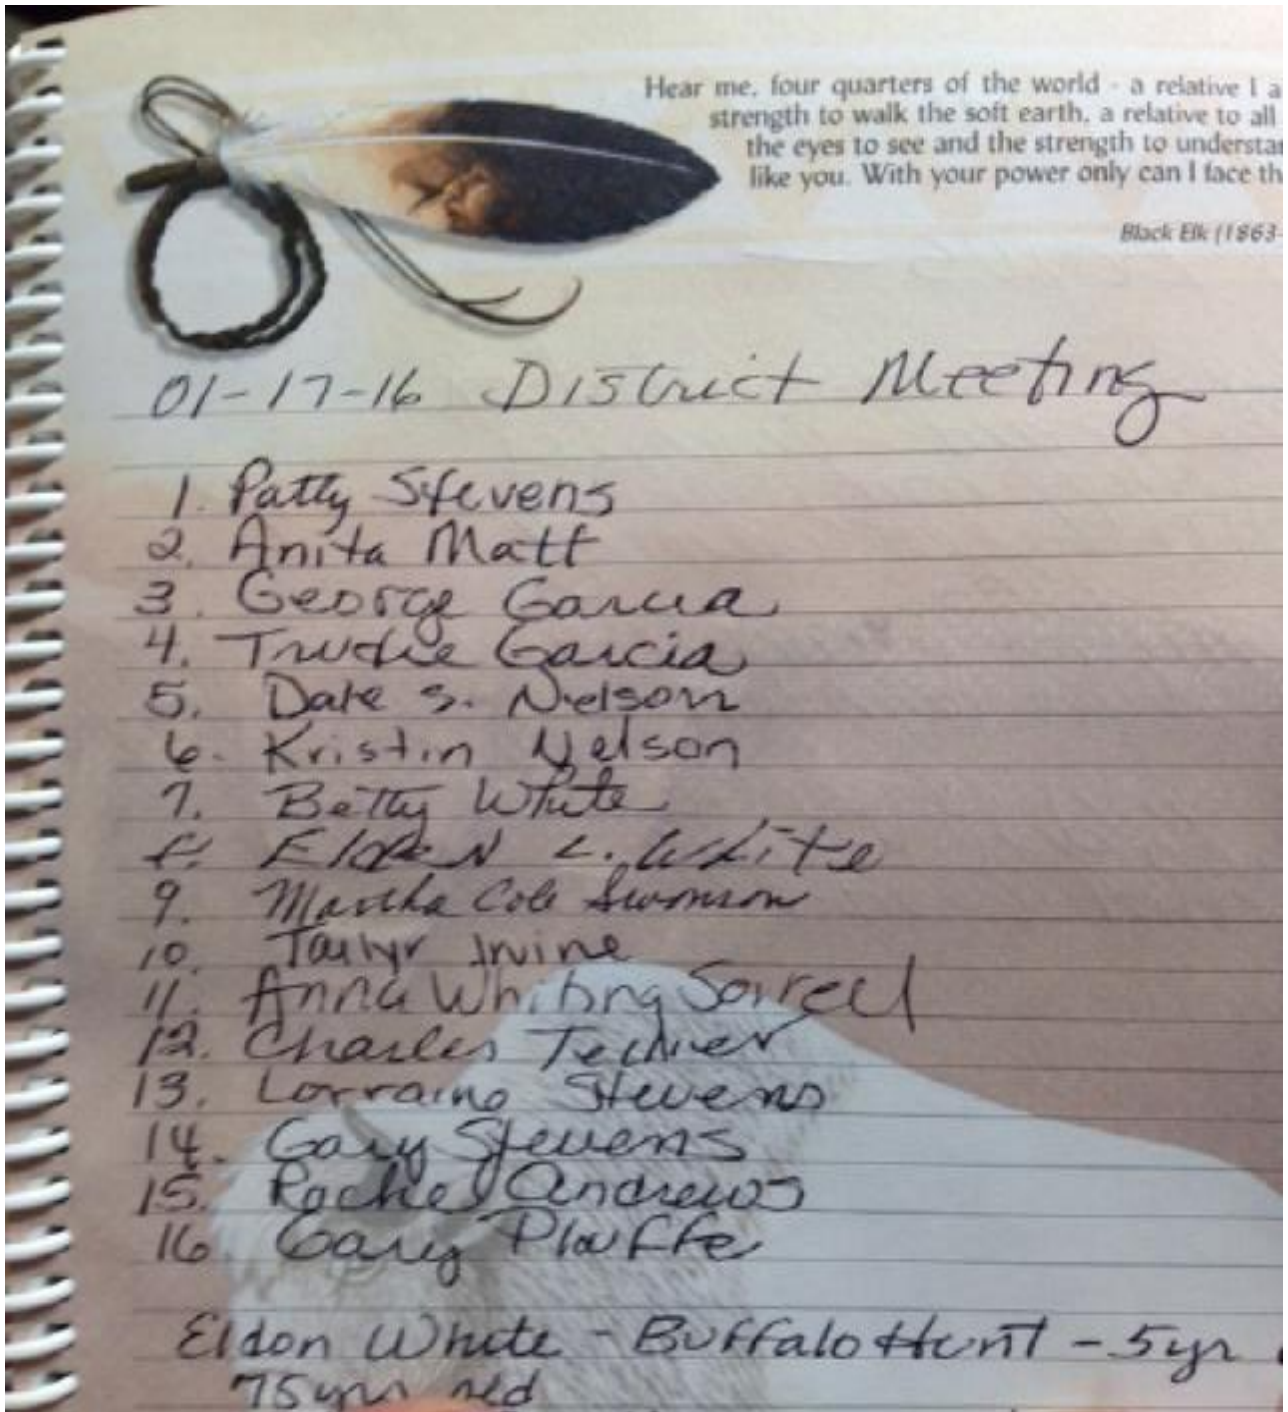 Hear me, four quarters of the world - a relative I a
strength to walk the soft earth, a relative to all
the eyes to see and the strength to understa
like you. With your power only can I face th
Black Elk (1863-
01-17-16 District Meeting
1. Patty Stevens
2. Anita Matt
3. George Garcia
4. Trudie Garcia
5. Dale S. Nielson
6. Kristin Nelson
7. Betty White
8. Elden L. White
9. Martha Cole Swanson
10. Taylyr Irvine
11. Anna Whiting Sorrell
12. Charles Tellier
13. Lorraine Stevens
14. Gary Stevens
15. Rachel Andrews
16. Gary Plouffe
Eldon White - Buffalo Hunt - 5yr
75yrs old